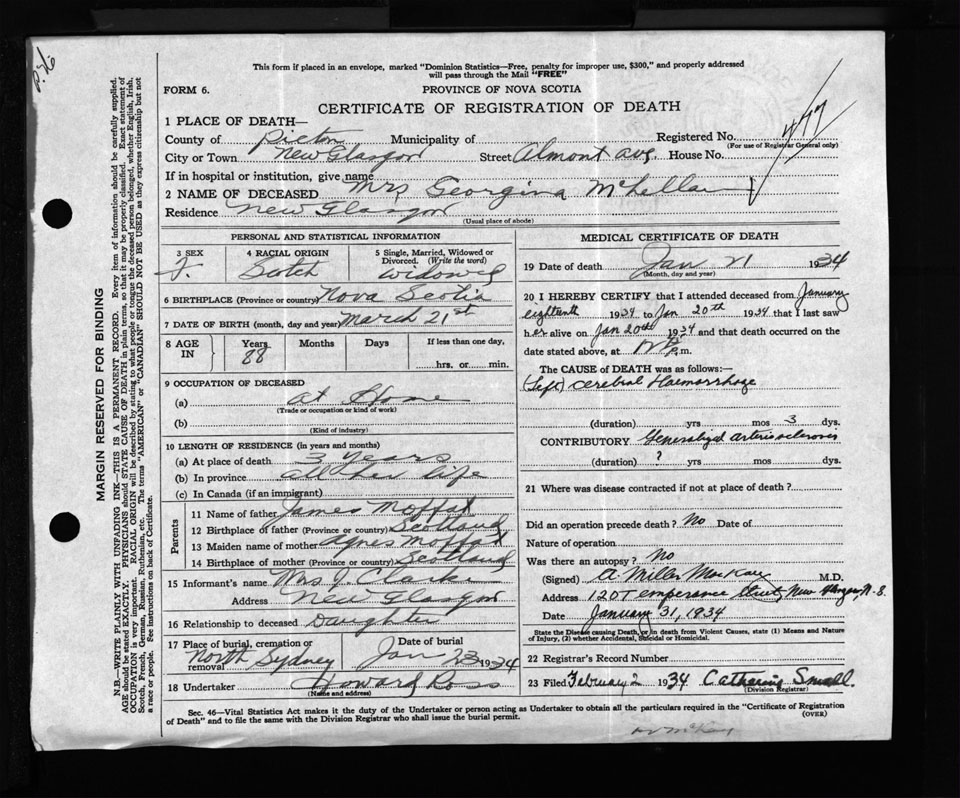 P. 76
This form if placed in an envelope, marked "Dominion Statistics—Free, penalty for improper use, $300," and properly addressed
will pass through the Mail "FREE"
FORM 6.
PROVINCE OF NOVA SCOTIA
CERTIFICATE OF REGISTRATION OF DEATH
477
MARGIN RESERVED FOR BINDING
N.B.—WRITE PLAINLY WITH UNFADING INK—THIS IS A PERMANENT RECORD. Every item of information should be carefully supplied.
AGE should be stated EXACTLY. PHYSICIANS should STATE CAUSE OF DEATH in plain terms, so that it may be properly classified. Exact statement of
OCCUPATION is very important. RACIAL ORIGIN will be described by stating to what people or tongue the deceased person belonged, whether English, Irish,
Scotch, French, German, Russian, Ruthenian, etc. The terms "AMERICAN" or "CANADIAN" SHOULD NOT BE USED as they express citizenship but not
a race or people. See instructions on back of Certificate.
1 PLACE OF DEATH—
County of Pictou Municipality of Registered No.
(For use of Registrar General only)
City or Town New Glasgow Street Almont ave House No.
If in hospital or institution, give name
2 NAME OF DECEASED Mrs Georgina McLellan
Residence New Glasgow
(Usual place of abode)
PERSONAL AND STATISTICAL INFORMATION
3 SEX
F.
4 RACIAL ORIGIN
Scotch
5 Single, Married, Widowed or
Divorced. (Write the word)
widowed
6 BIRTHPLACE (Province or country) Nova Scotia
7 DATE OF BIRTH (month, day and year) March 21st
8 AGE
IN
Years Months Days If less than one day,
88 hrs. or min.
9 OCCUPATION OF DECEASED
(a) at Home
(Trade or occupation or kind of work)
(b)
(Kind of industry)
10 LENGTH OF RESIDENCE (in years and months)
(a) At place of death 3 years
(b) In province all her life
(c) In Canada (if an immigrant)
Parents
11 Name of father James Moffat
12 Birthplace of father (Province or country) Scotland
13 Maiden name of mother Agnes Moffat
14 Birthplace of mother (Province or country) Scotland
15 Informant's name Mrs J. Clarke
Address New Glasgow
16 Relationship to deceased Daughter
17 Place of burial, cremation or
removal North Sydney
Date of burial
Jan 23 1934
18 Undertaker Howard Ross
(Name and address)
MEDICAL CERTIFICATE OF DEATH
19 Date of death Jan 21 1934
(Month, day and year)
20 I HEREBY CERTIFY that I attended deceased from January
eighteenth 1934 to Jan 20th 1934 that I last saw
her alive on Jan 20th 1934 and that death occurred on the
date stated above, at m.
The CAUSE of DEATH was as follows:—
(Left) Cerebral Haemorrhage
(duration) yrs mos 3 dys.
CONTRIBUTORY Generalized arteriosclerosis
(duration) ? yrs mos dys.
21 Where was disease contracted if not at place of death?
Did an operation precede death? No Date of
Nature of operation
Was there an autopsy? No
(Signed) A Miller MacKay M.D.
Address 120 Temperance Street, New Glasgow, N.S.
Date January 31, 1934
State the Disease causing Death, or in death from Violent Causes, state (1) Means and Nature
of Injury, (2) whether Accidental, Suicidal or Homicidal.
22 Registrar's Record Number
23 Filed February 2 1934 Catharine Small.
(Division Registrar)
Sec. 46—Vital Statistics Act makes it the duty of the Undertaker or person acting as Undertaker to obtain all the particulars required in the "Certificate of Registration
of Death" and to file the same with the Division Registrar who shall issue the burial permit.
(OVER)